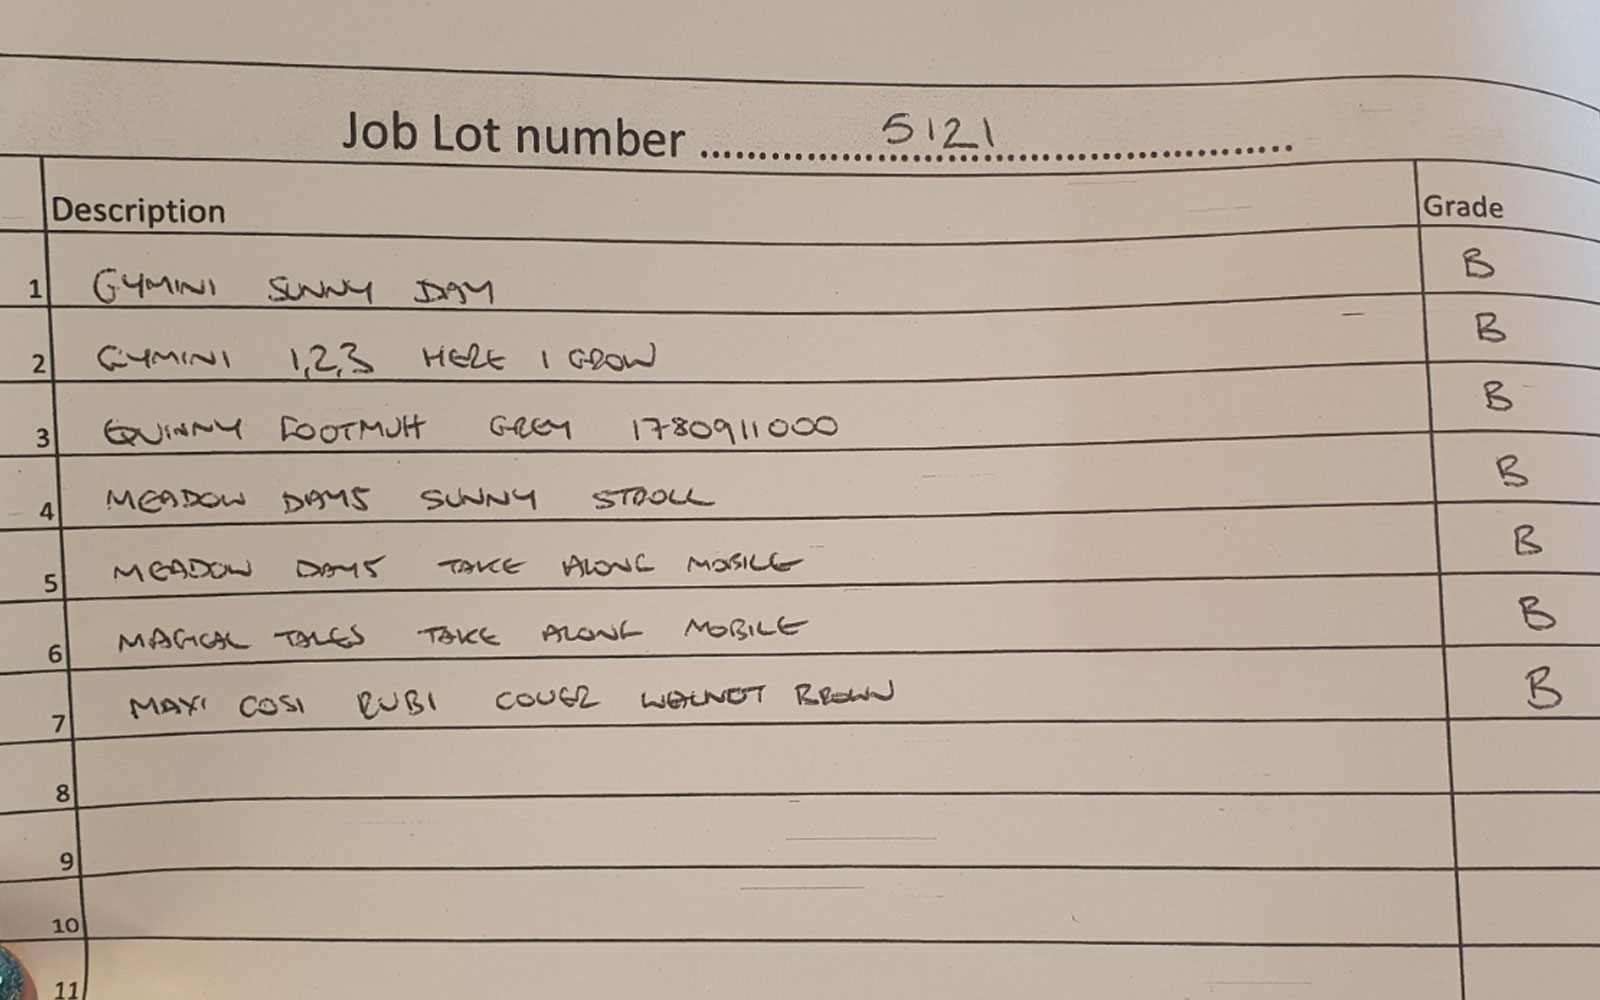 Job Lot number .......... 5121 ..........
Description Grade
1 GYMINI SUNNY DAY B
2 GYMINI 1,2,3 HERE I GROW B
3 QUINNY FOOTMUFF GREY 1780911000 B
4 MEADOW DAYS SUNNY STROLL B
5 MEADOW DAYS TAKE ALONG MOBILE B
6 MAGICAL TALES TAKE ALONG MOBILE B
7 MAXI COSI RUBI COVER WALNUT BROWN B
8
9
10
11